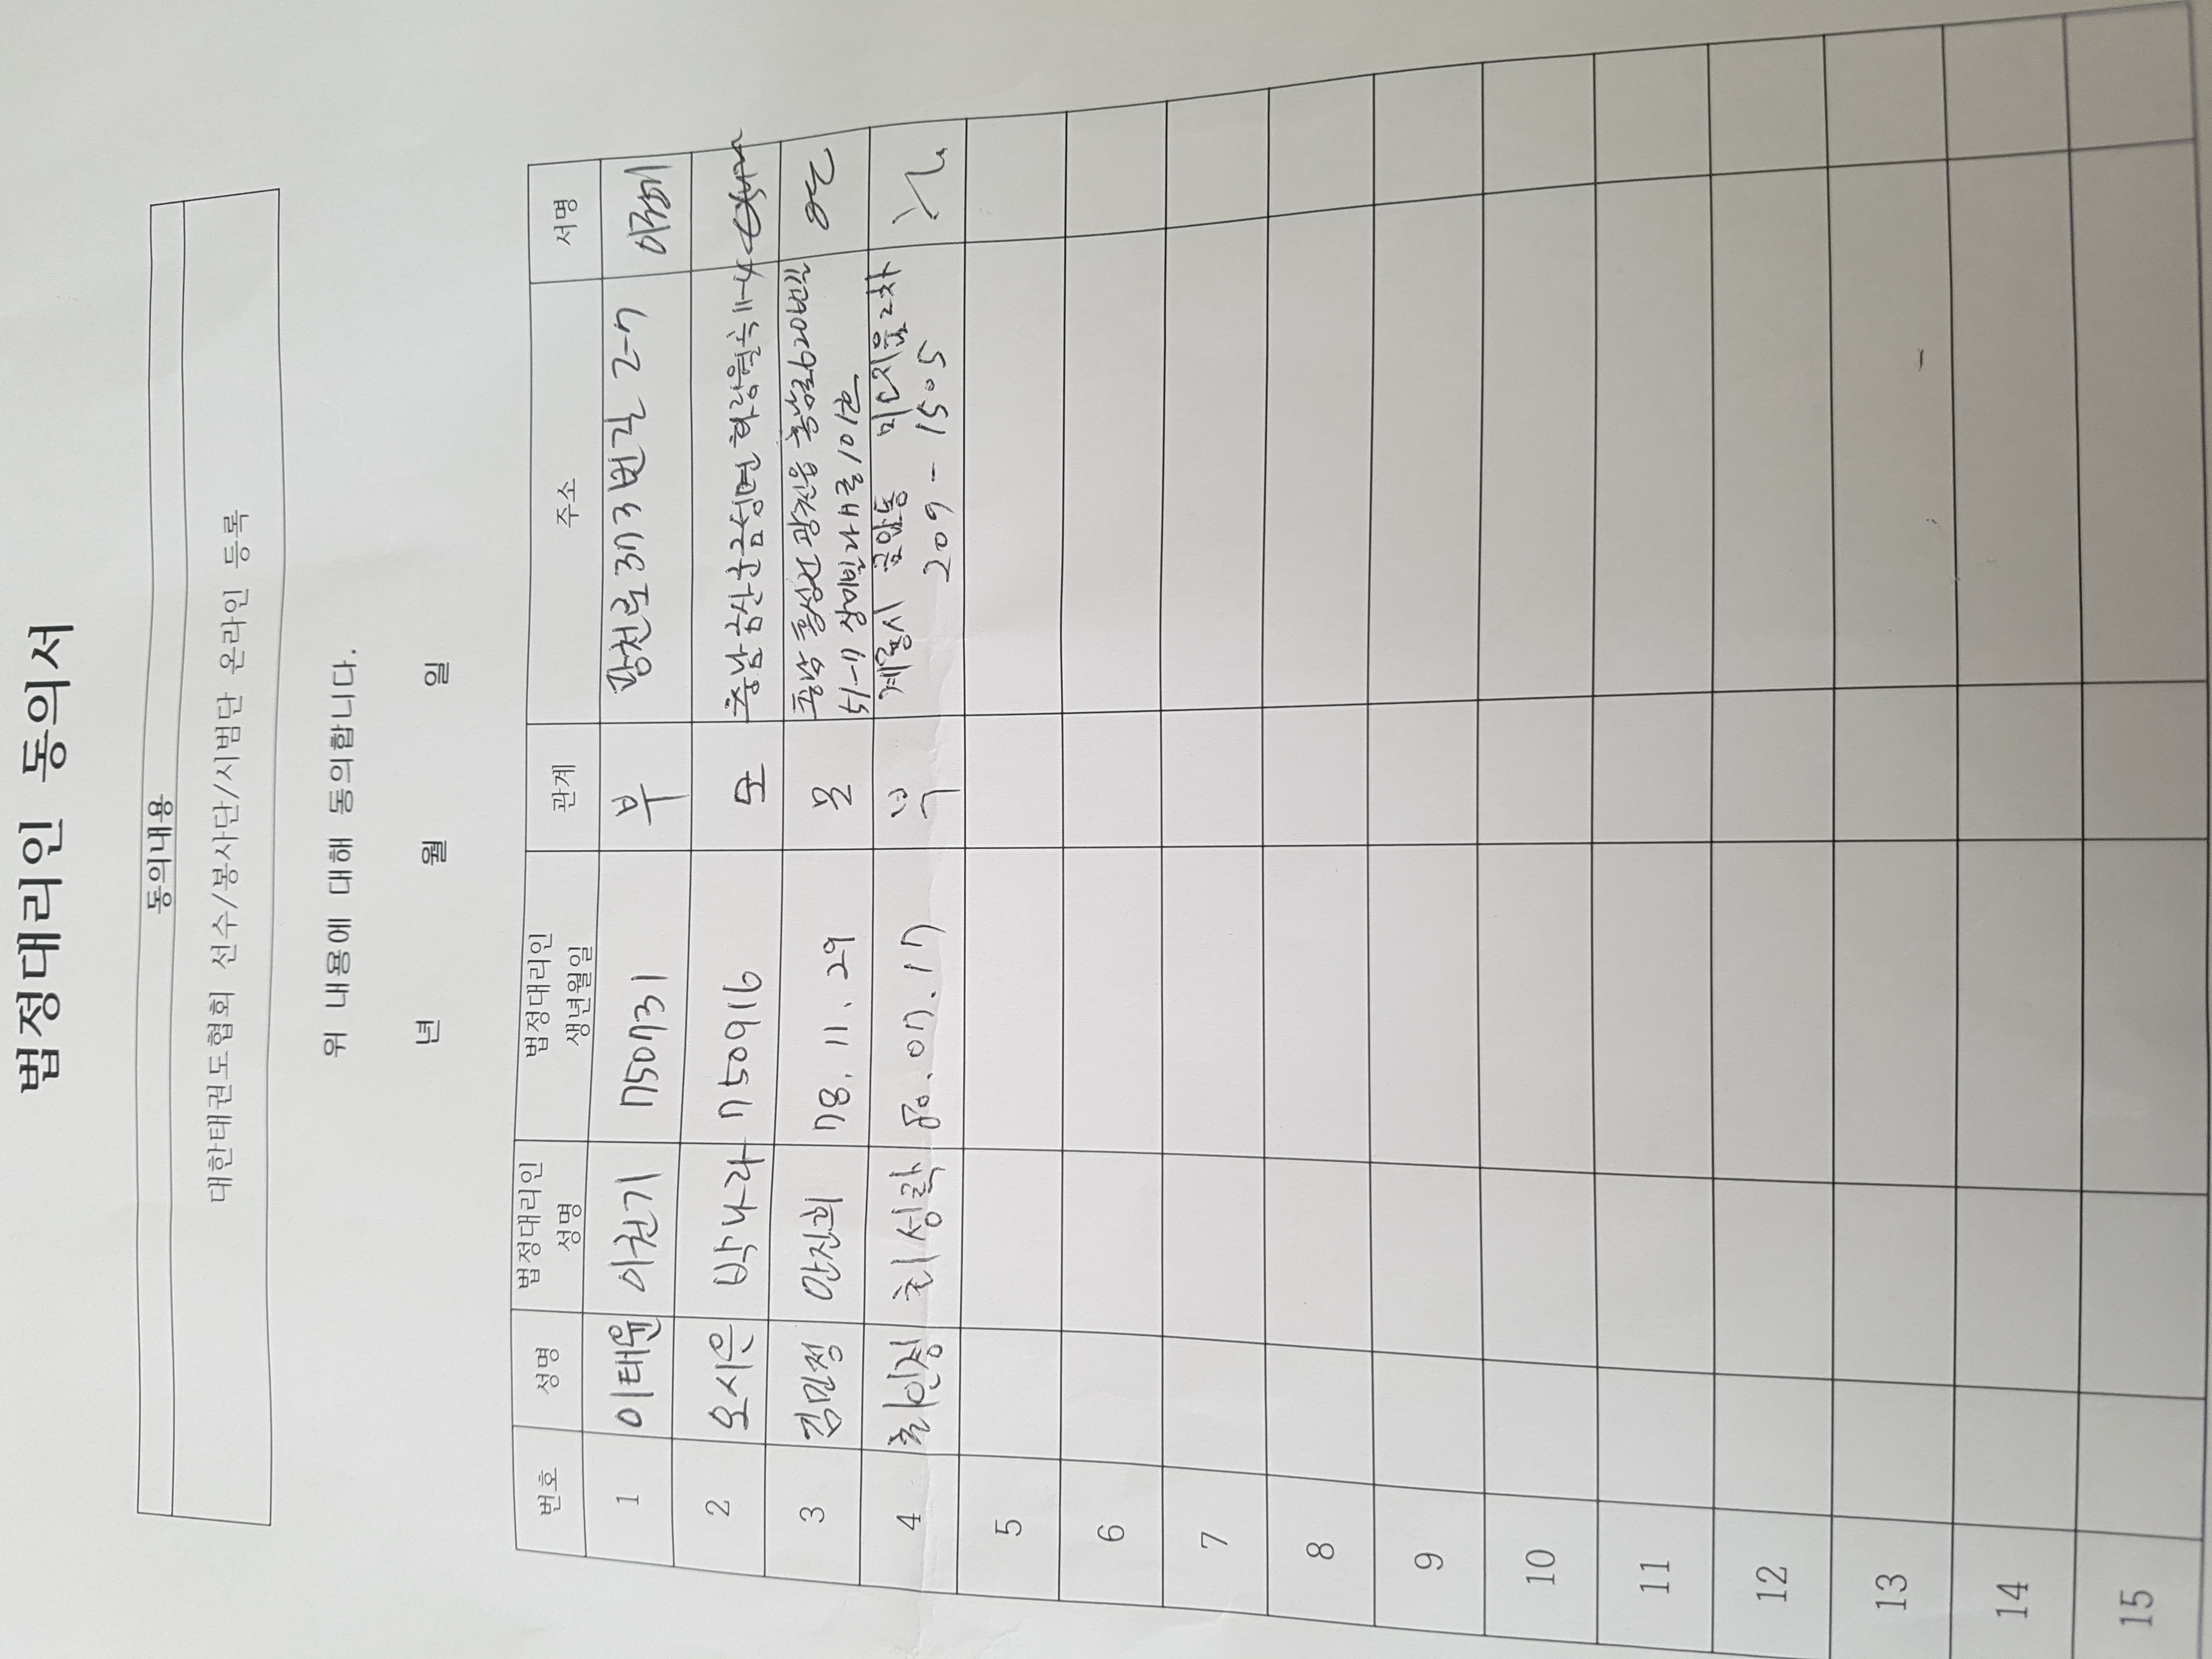 법정대리인 동의서
동의내용
대한태권도협회 선수/봉사단/시범단 온라인 등록
위 내용에 대해 동의합니다.
년 월 일
번호 성명 법정대리인 성명 법정대리인 생년월일 관계 주소 서명
1 이태윤 이천기 750731 부 광천로373번길 2-7
2 오시은 박나라 750916 모 충남 금산군 금성면 하랑월촌 11-4
3 김민정 안진희 78.11.29 모 충남 홍성군 광천읍 홍남로620번길
51-7 상미빌라 B동 101호
4 최인정 최성락 80.07.17 부 계룡시 금암동 미더유를2차
209-1505
5
6
7
8
9
10
11
12
13
14
15